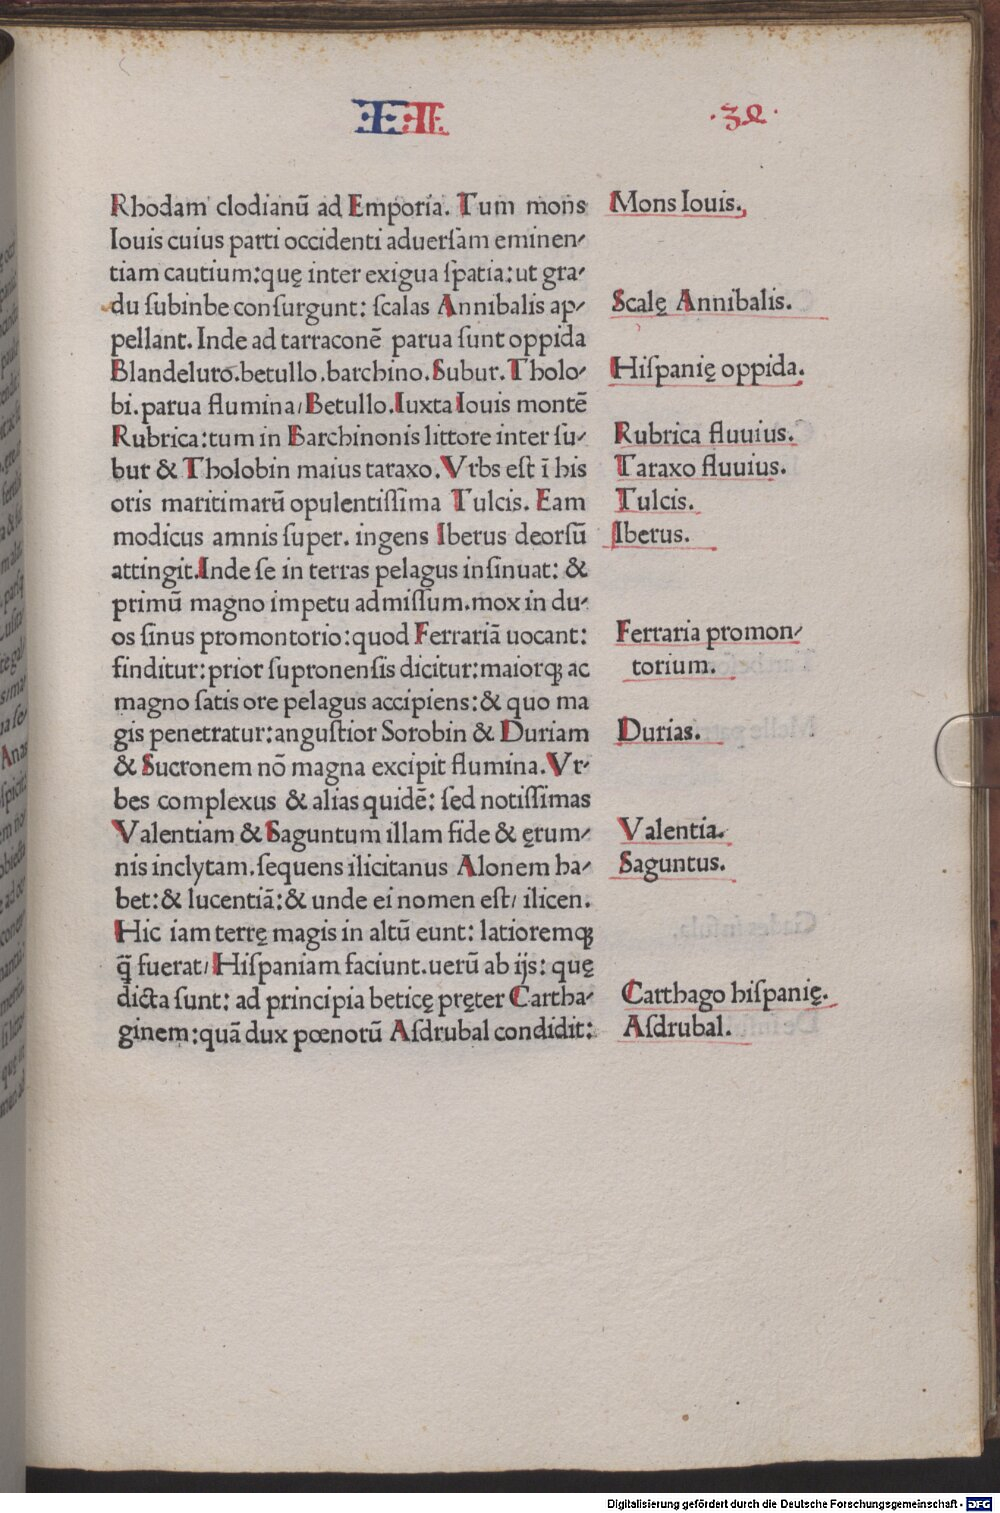 II
·32·
Rhodam clodianū ad Emporia. Tum mons
Iouis cuius parti occidenti aduerſam eminen-
tiam cautium:quę inter exigua ſpatia:ut gra-
du ſubinbe conſurgunt: ſcalas Annibalis ap-
pellant. Inde ad tarraconē parua ſunt oppida
Blandeluro.betullo.barchino.Subur.Tholo-
bi.parua flumina/Betullo.Iuxta Iouis montē
Rubrica:tum in Barchinonis littore inter ſu-
bur & Tholobin maius taraxo.Vrbs eſt ī his
oris maritimarū opulentiſſima Tulcis. Eam
modicus amnis ſuper. ingens Iberus deorſū
attingit.Inde ſe in terras pelagus inſinuat: &
primū magno impetu admiſſum.mox in du-
os ſinus promontorio:quod Ferrariā uocant:
finditur:prior ſupronenſis dicitur:maiorꝗ ac
magno ſatis ore pelagus accipiens:& quo ma
gis penetratur:anguſtior Sorobin & Duriam
& Sucronem nō magna excipit flumina.Vr-
bes complexus & alias quidē: ſed notiſſimas
Valentiam & Saguntum illam fide & ęrum-
nis inclytam.ſequens ilicitanus Alonem ha-
bet:& lucentiā:& unde ei nomen eſt/ ilicen.
Hic iam terrę magis in altū eunt: latioremꝗ
q̄ fuerat/Hiſpaniam faciunt.uerū ab ijs: quę
dicta ſunt: ad principia beticę pręter Cartha-
ginem:quā dux pœnorū Aſdrubal condidit:
Mons Iouis.
Scalę Annibalis.
Hiſpanię oppida.
Rubrica fluuius.
Taraxo fluuius.
Tulcis.
Iberus.
Ferraria promon-
torium.
Durias.
Valentia.
Saguntus.
Carthago hiſpanię.
Aſdrubal.
Digitalisierung gefördert durch die Deutsche Forschungsgemeinschaft - DFG